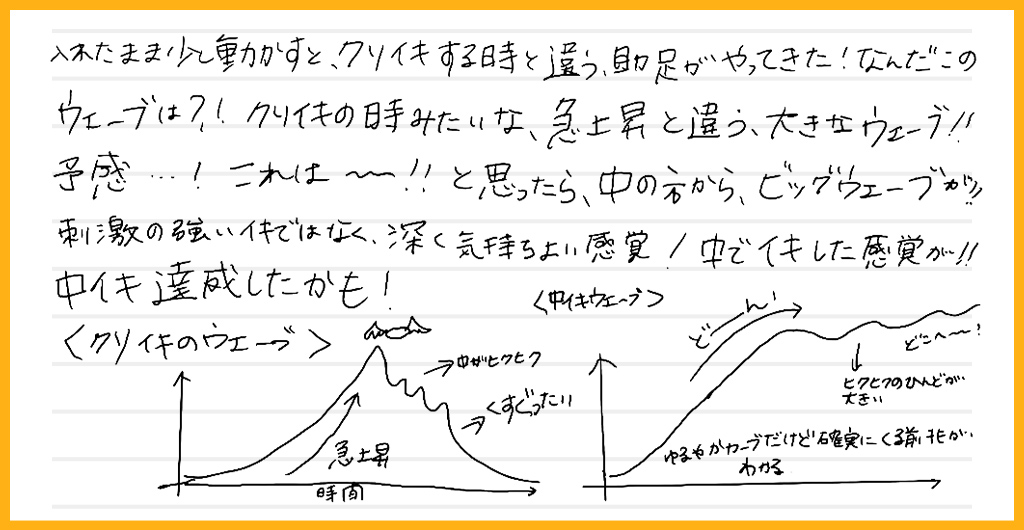 入れたまま少し動かすと、クリイキする時と違う、助走がやってきた！なんだこの
ウェーブは?!　クリイキの時みたいな、急上昇と違う、大きなウェーブ!!
予感…！　これは〜〜!!　と思ったら、中の方から、ビッグウェーブが!!
刺激の強いイキではなく、深く気持ちよい感覚！中でイキした感覚が!!
中イキ達成したかも！
〈クリイキのウェーブ〉
中がヒクヒク
くすぐったい
急上昇
時間
〈中イキウェーブ〉
ど――ん!
どこへ〜〜!
ヒクヒクのひんどが
大きい
ゆるやかカーブだけど確実にくる前兆が
わかる